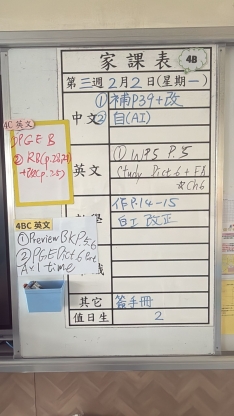 家課表
4B
第三週2月2日(星期一)
中文
①補P39+改
②自(AI)
4C 英文
①PGE B
英文
①WP5 P.5
Study Dict.6 + Ex
☆Ch6
作P.14-15
自工 改正
4BC 英文
①Preview BKP.56
②PGE Dict.6
A×1 time
其它
簽手冊
值日生
2